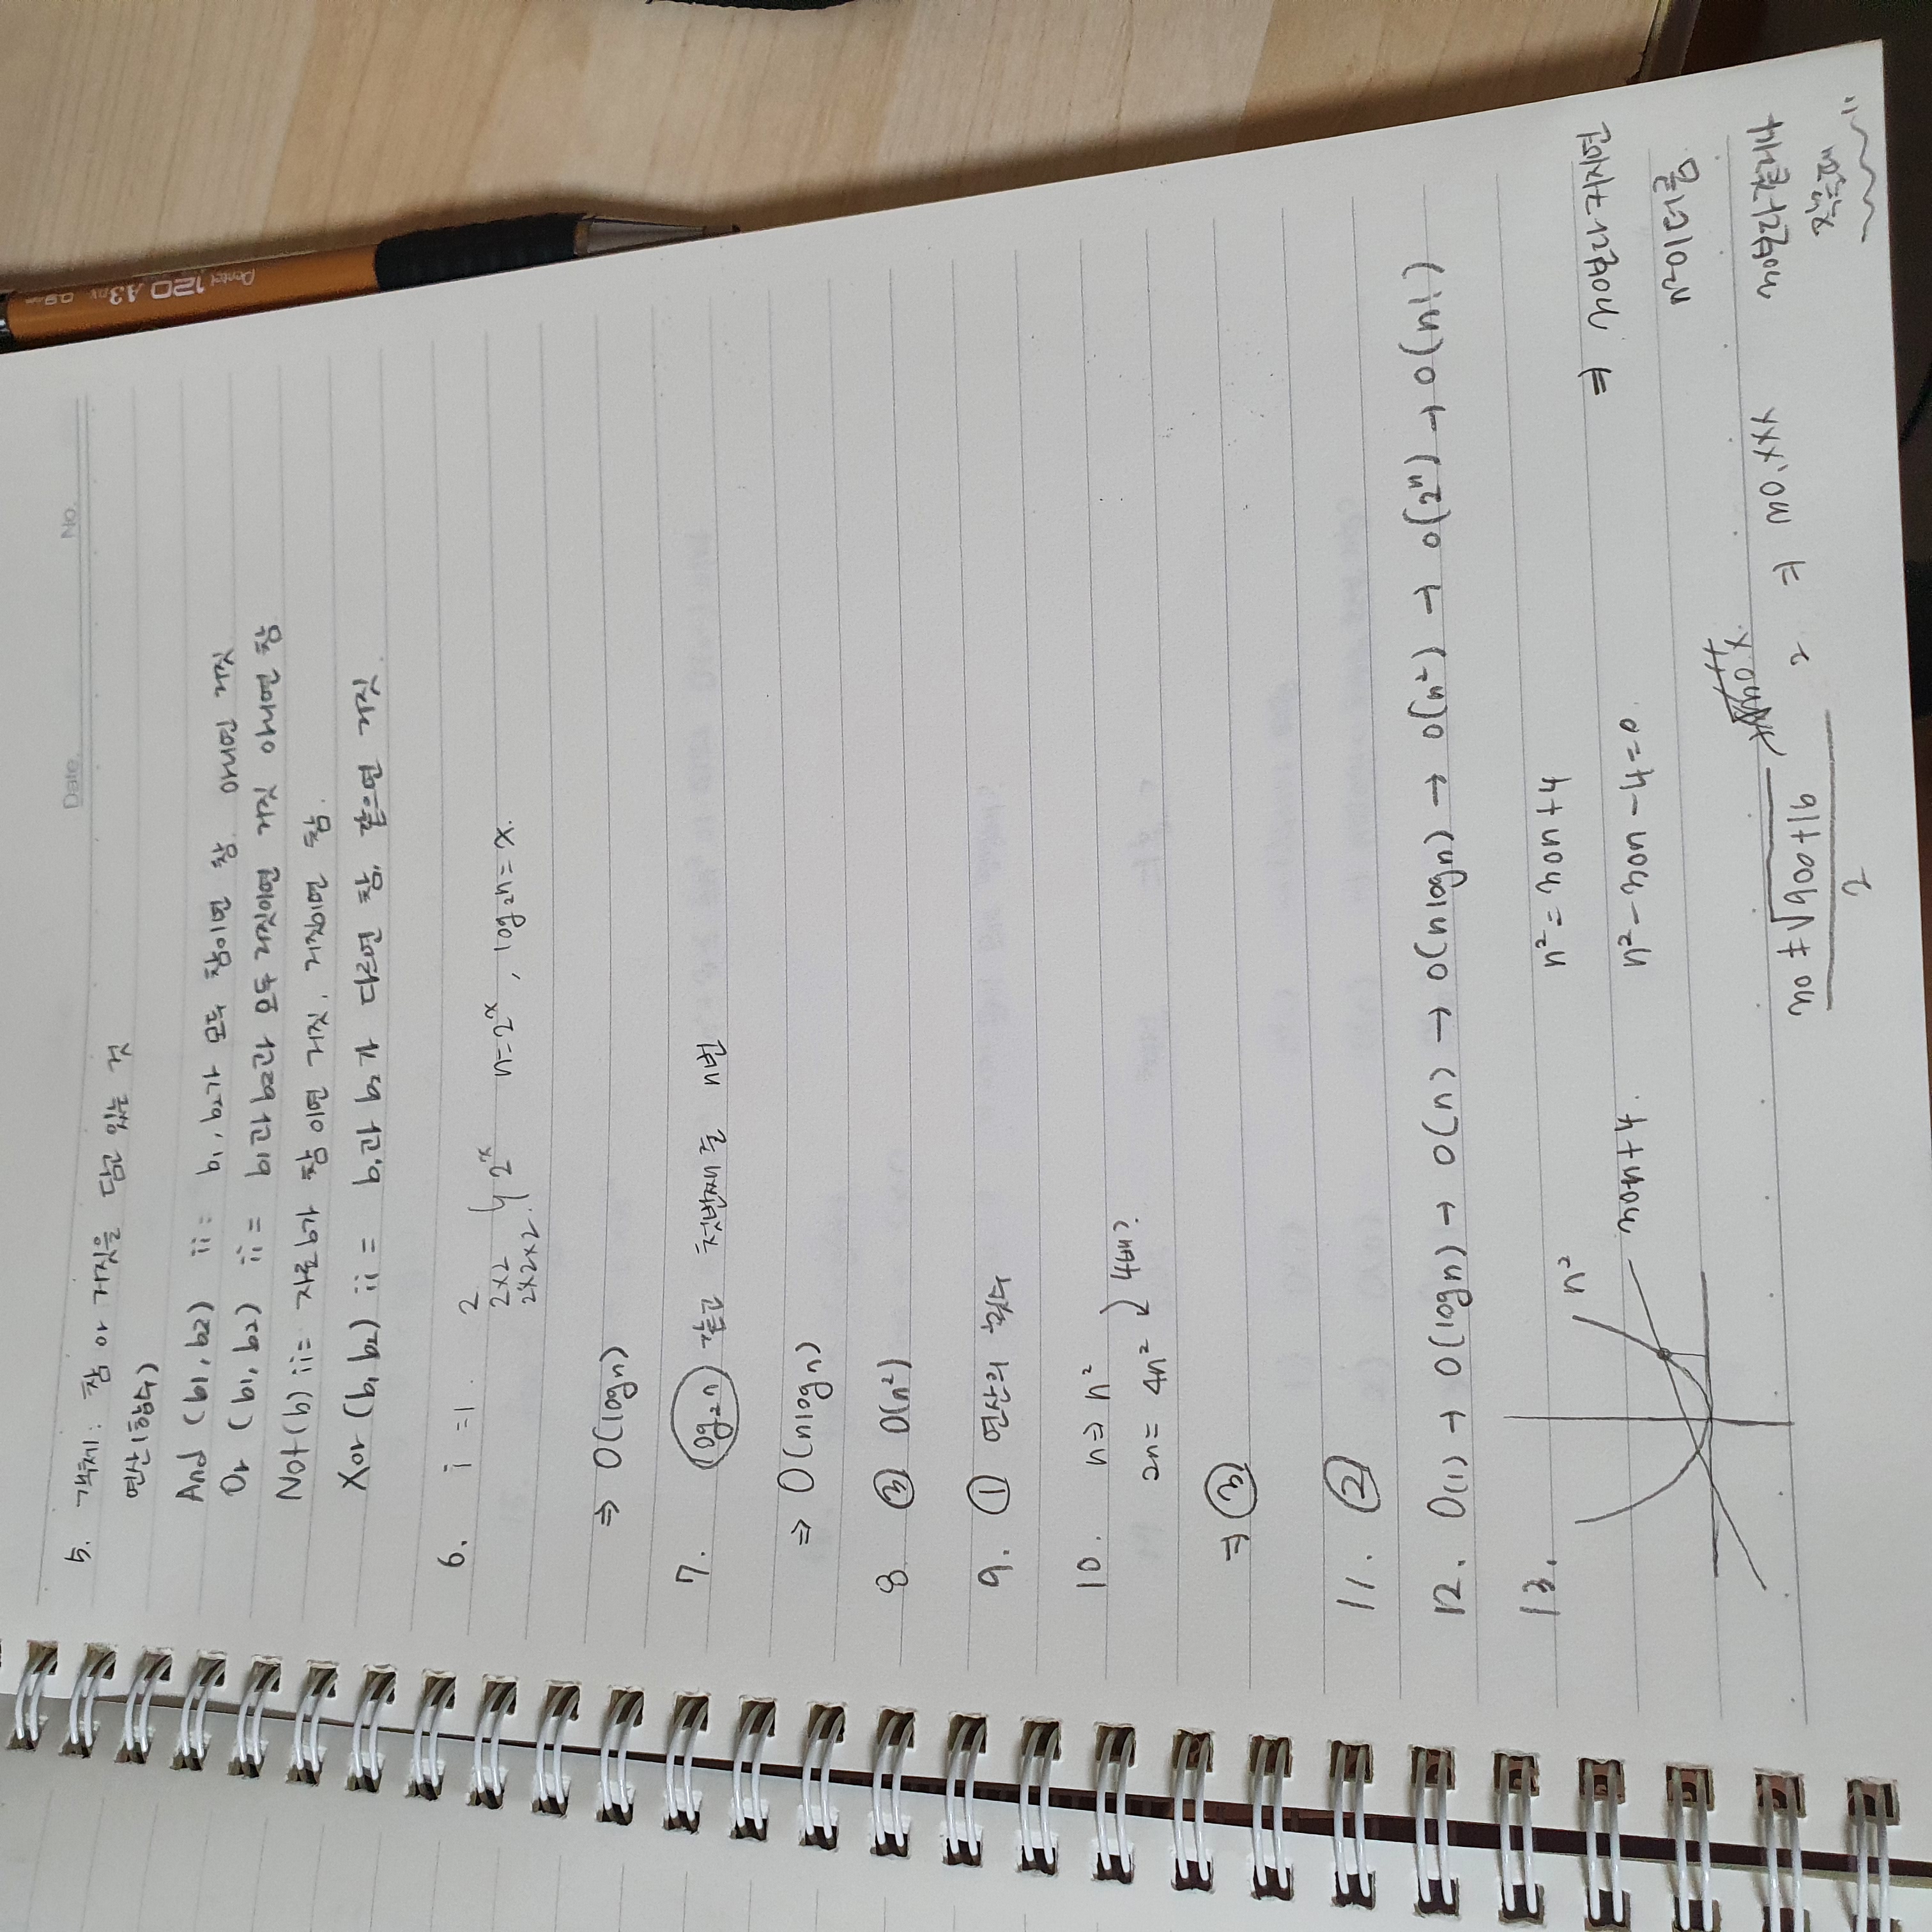 Date. No.
5. 객체: 참 or 거짓을 담고 있는 것
연산(함수)
And (b1, b2) ii= b1, b2가 모두 참이면 참. 아니면 거짓
Or (b1, b2) ii= b1과 b2과 모두 거짓이면 거짓 아니면 참
Not(b) ii= 자료b가 참 이면 거짓, 거짓이면 참.
Xor (b1 b2) ii= b1과 b2가 다르면 참, 같으면 거짓.
6. i =1. 2
2x2 2^x n=2^x, log₂n=x.
2x2x2.
⇒ O(logn)
7. log₂n 같고 첫번째 줄 n번
⇒ O(nlogn)
8 ③ O(n²)
9. ① 연산의 횟수
10. n⇒ n²
2n= 4n² 4배?
⇒ ③
11. ②
12. O(1) → O(logn) → O(n) → O(nlogn) → O(n²) → O(2ⁿ) → O(n!)
13. n² n²=30n+4
30n+4. n²-30n-4=0.
⇒ 30보다 커지면
n²이 더 큼
30±√900+16
2
2 ⇒ 30.xxx
30보다 같거나
작을때
Pentel 120 A3DX 0.9mm